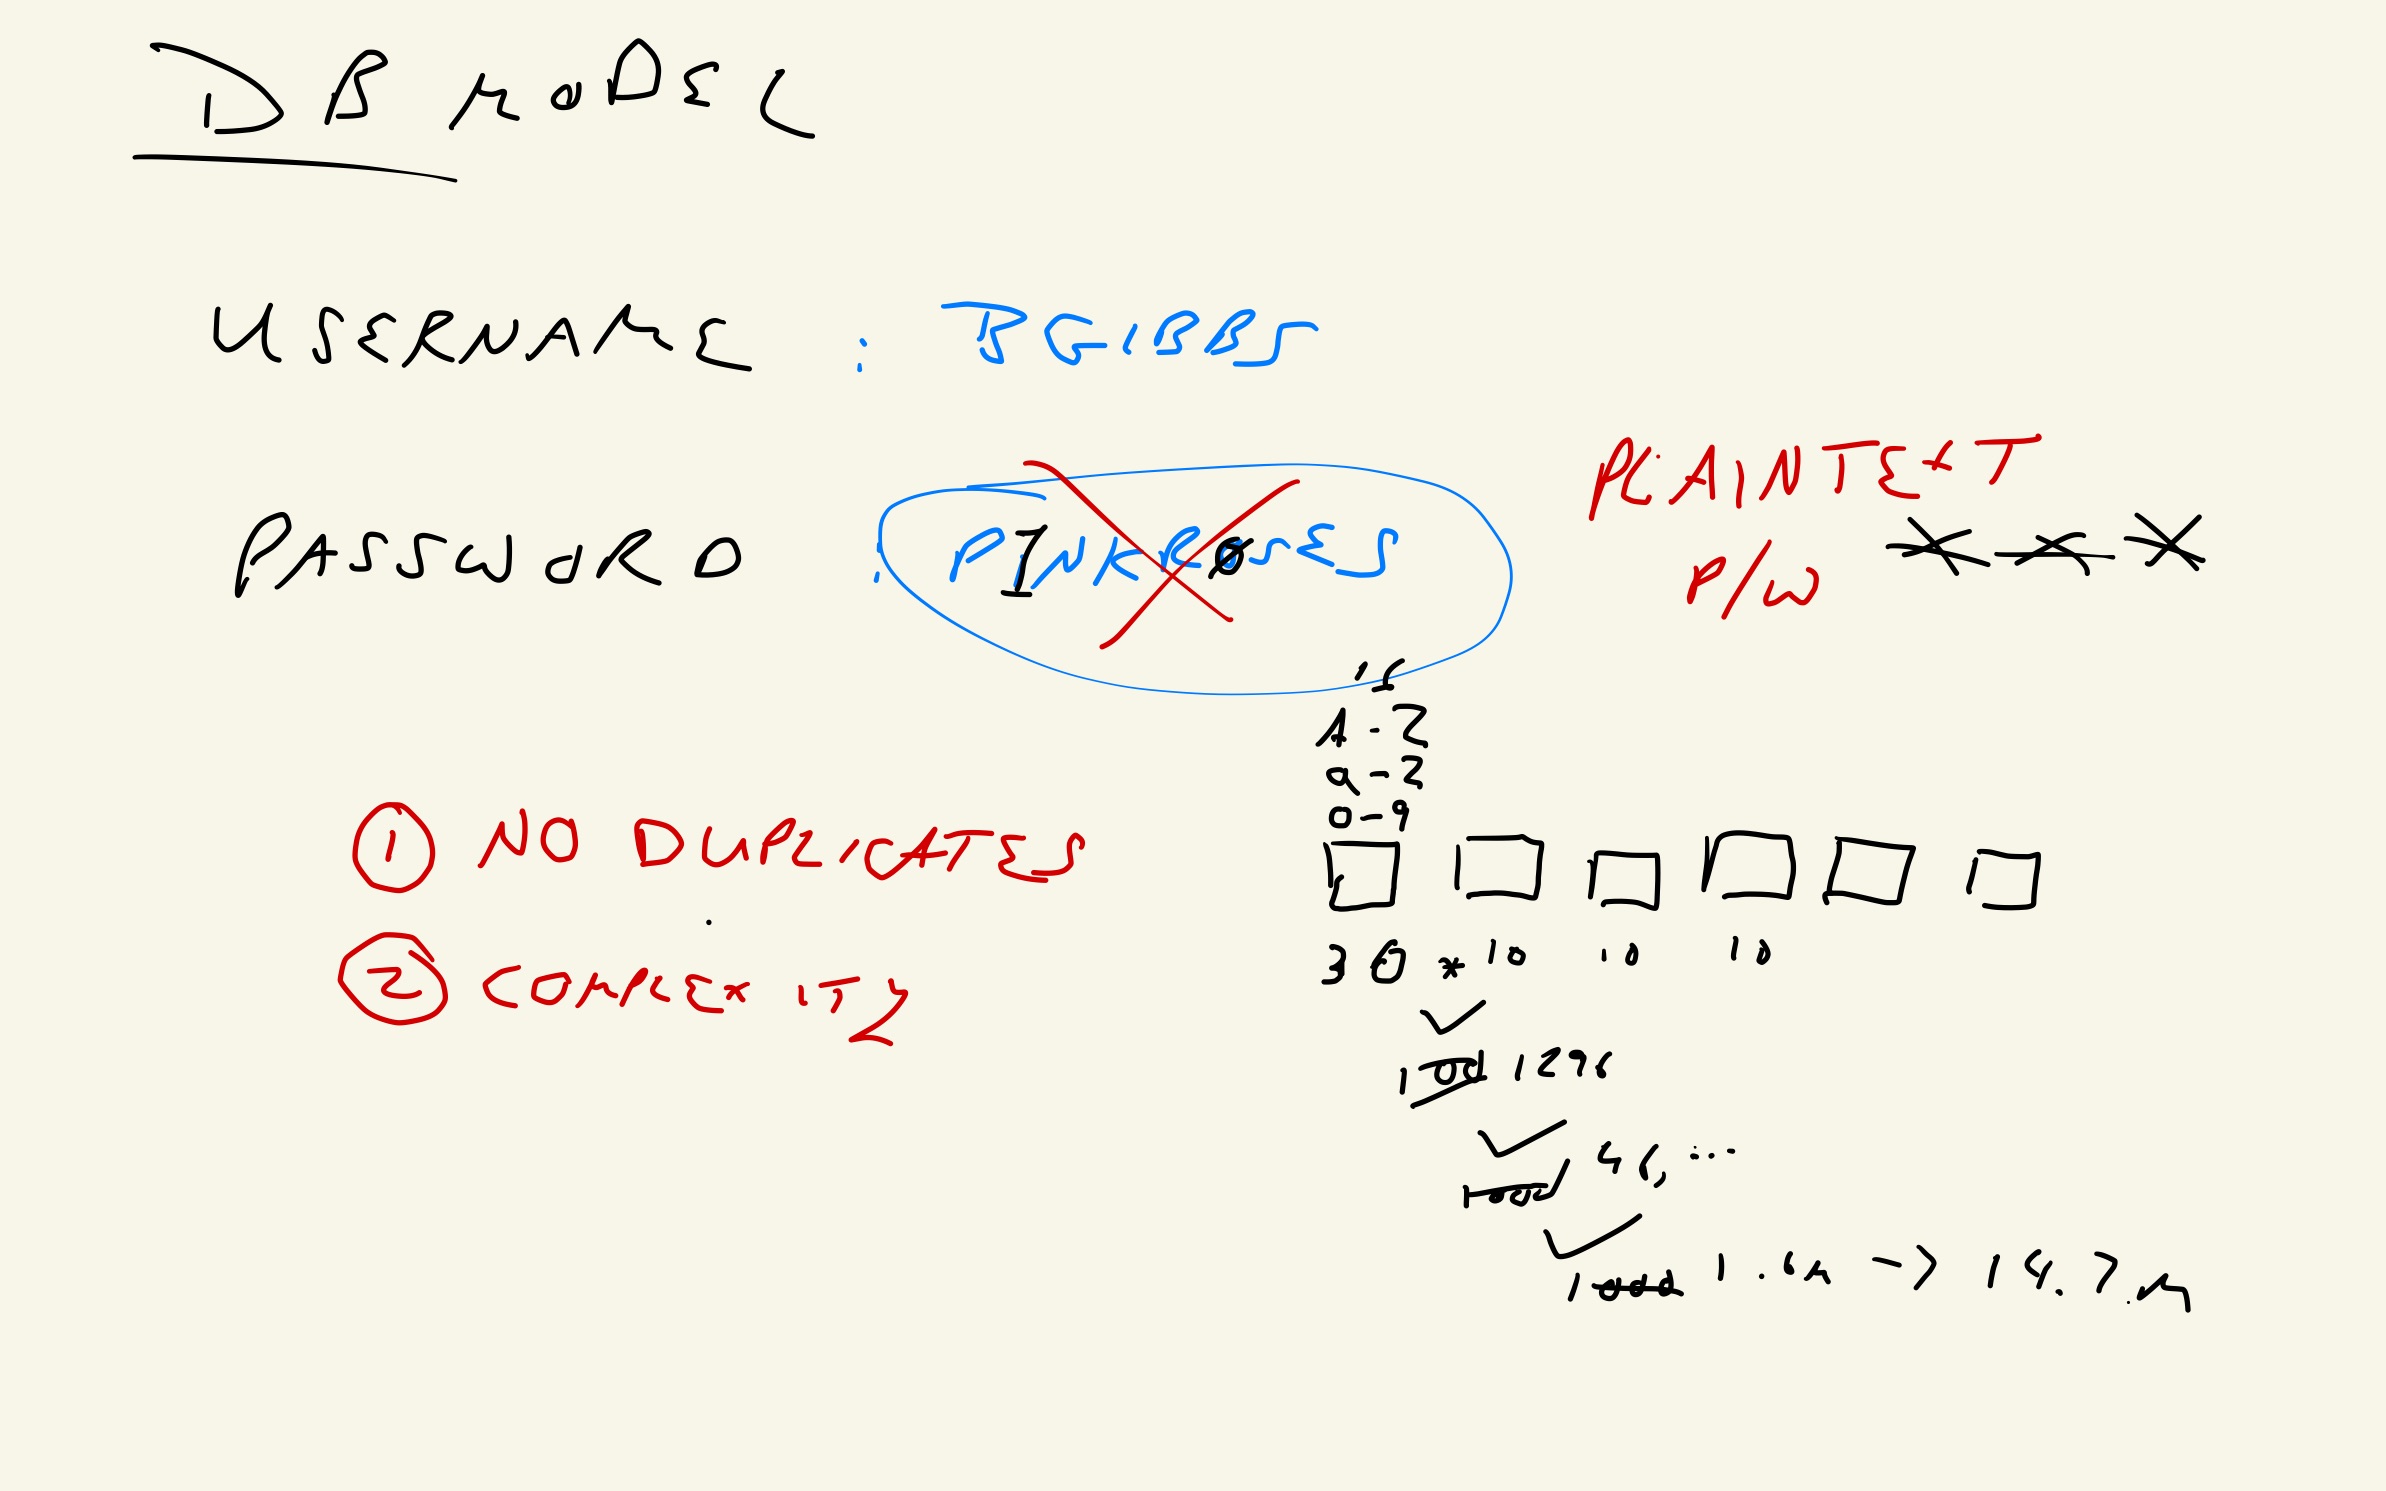 DB MODEL
USERNAME : BGIBBS
PASSWORD : PINKROSES
PLAINTEXT
P/W
***
A-Z
a-z
0-9
① NO DUPLICATES
② COMPLEXITY
36 * 10 10 10
100 1296
1000 46, ...
1000 1.6M -> 14.7M